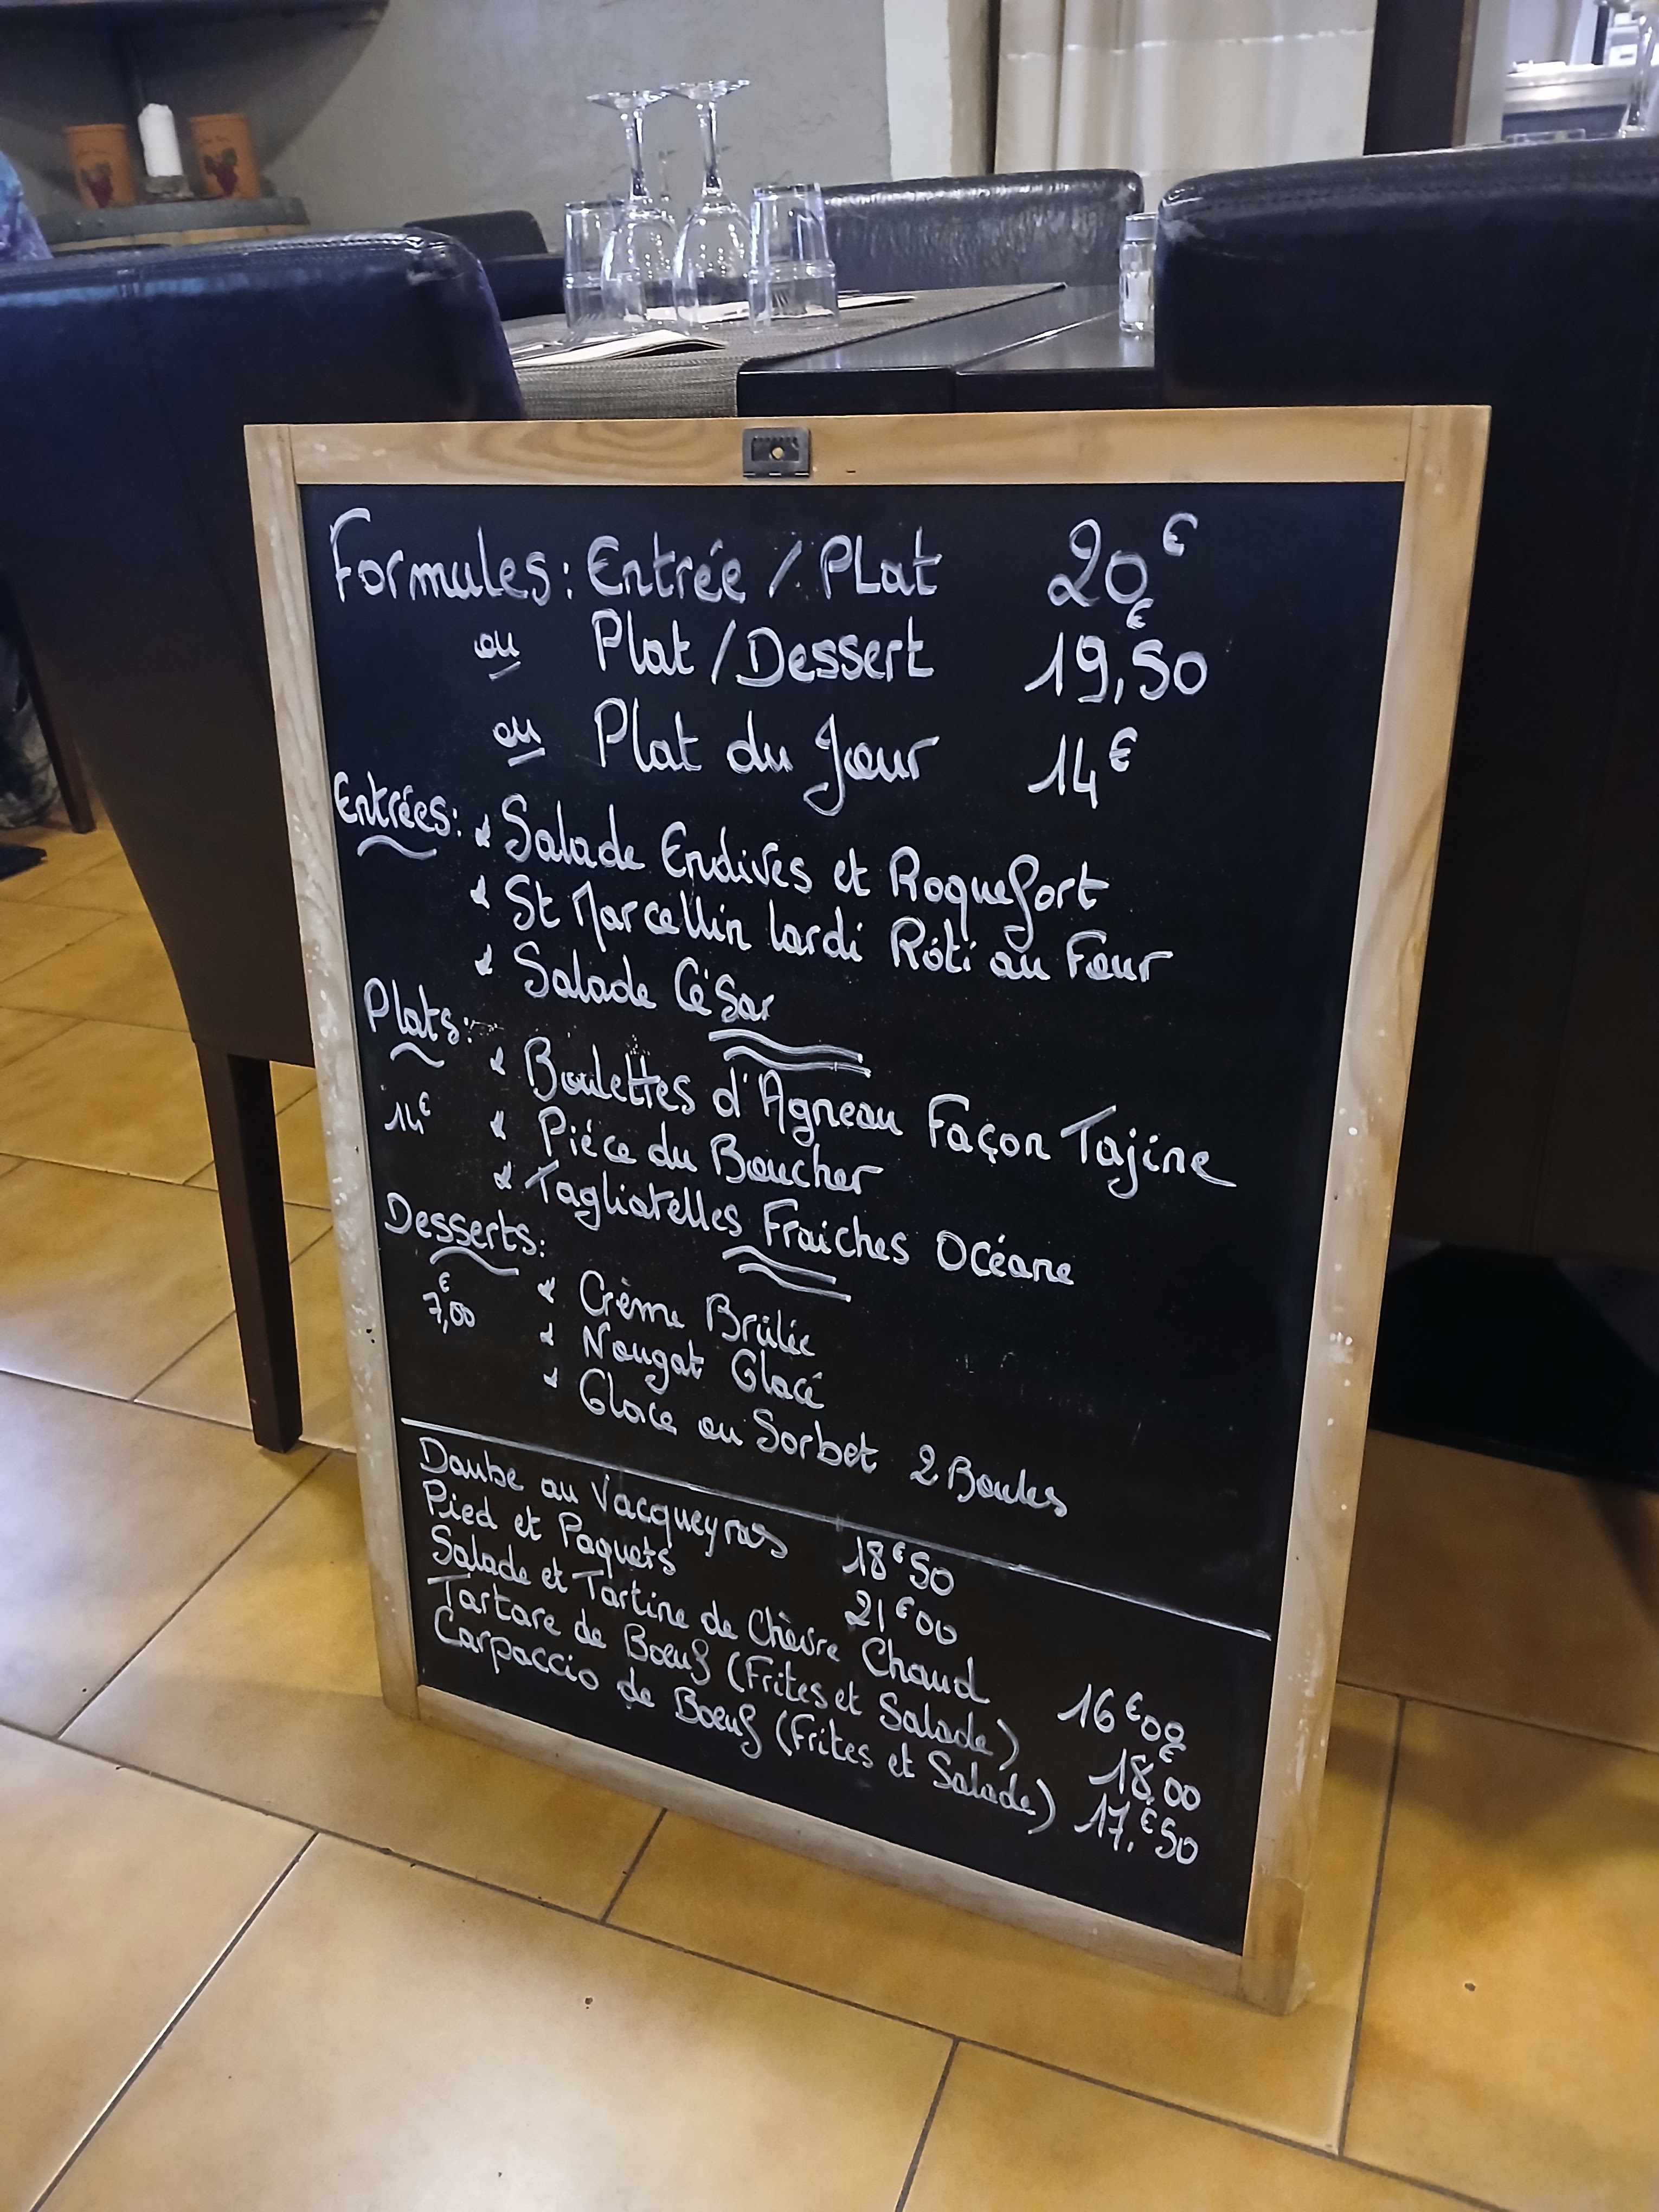 Formules: Entrée / Plat 20€
ou Plat / Dessert 19,50€
ou Plat du Jour 14€
Entrées: * Salade Endives et Roquefort
* St Marcellin lardi Rôti au Four
* Salade César
Plats: * Boulettes d'Agneau Façon Tajine
14€ * Piéce du Boucher
* Tagliatelles Fraiches Océane
Desserts:
7,00€ * Crème Brûlée
* Nougat Glacé
* Glace ou Sorbet 2 Boules
Daube au Vacqueyras 18€50
Pied et Paquets 21€00
Salade et Tartine de Chèvre Chaud 16€00
Tartare de Boeuf (Frites et Salade) 18,€00
Carpaccio de Boeuf (Frites et Salade) 17,€50